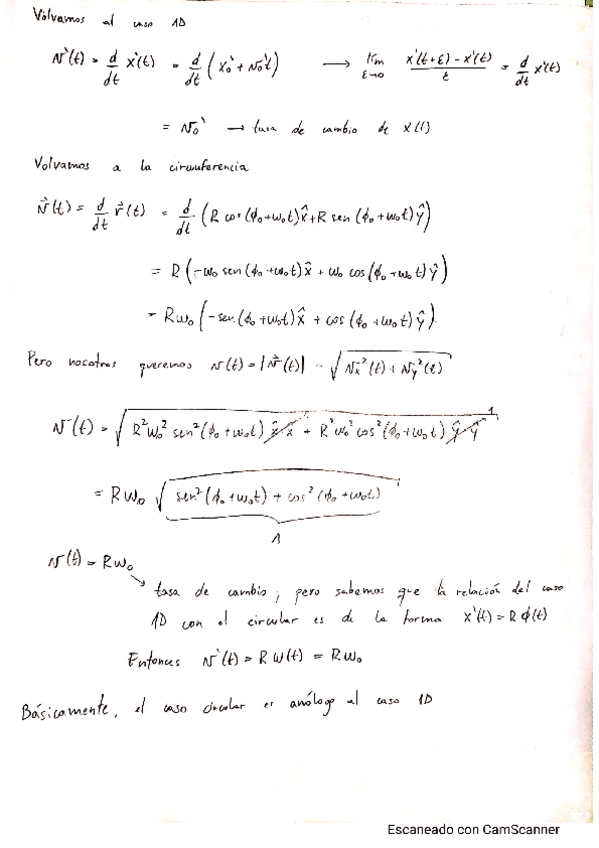 Volvamos al caso 1D
v'(t) = d/dt x'(t) = d/dt (x₀' + v₀'t) → lím ε→0 x'(t+ε) - x'(t) / ε = d/dt x'(t)
= v₀' → tasa de cambio de x'(t)
Volvamos a la circunferencia
v⃗(t) = d/dt r⃗(t) = d/dt (R cos(ϕ₀+ω₀t)x̂ + R sen(ϕ₀+ω₀t)ŷ)
= R(-ω₀ sen(ϕ₀+ω₀t)x̂ + ω₀ cos(ϕ₀+ω₀t)ŷ)
= Rω₀(-sen(ϕ₀+ω₀t)x̂ + cos(ϕ₀+ω₀t)ŷ)
Pero nosotros queremos v(t) = |v⃗(t)| = √(vₓ²(t) + v_y²(t))
v(t) = √(R²ω₀² sen²(ϕ₀+ω₀t) x̂·x̂ + R²ω₀² cos²(ϕ₀+ω₀t) ŷ·ŷ) 1
= Rω₀ √(sen²(ϕ₀+ω₀t) + cos²(ϕ₀+ω₀t))
1
v(t) = Rω₀
→ tasa de cambio, pero sabemos que la relación del caso
1D con el circular es de la forma x'(t) = Rϕ(t)
Entonces v'(t) = Rω(t) = Rω₀
Básicamente, el caso circular es análogo al caso 1D
Escaneado con CamScanner